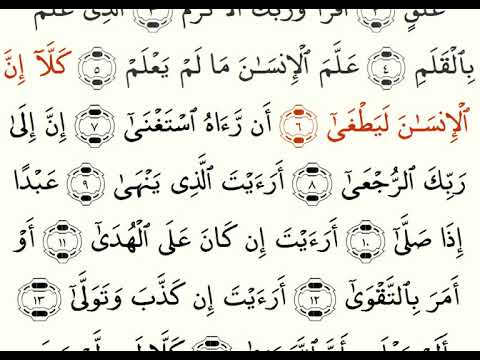 عَلَقٍ ٢ ٱقْرَأْ وَرَبُّكَ ٱلْأَكْرَمُ ٣ ٱلَّذِى عَلَّمَ
بِٱلْقَلَمِ ٤ عَلَّمَ ٱلْإِنسَـٰنَ مَا لَمْ يَعْلَمْ ٥ كَلَّآ إِنَّ
ٱلْإِنسَـٰنَ لَيَطْغَىٰٓ ٦ أَن رَّءَاهُ ٱسْتَغْنَىٰٓ ٧ إِنَّ إِلَىٰ
رَبِّكَ ٱلرُّجْعَىٰٓ ٨ أَرَءَيْتَ ٱلَّذِى يَنْهَىٰ ٩ عَبْدًا
إِذَا صَلَّىٰٓ ١٠ أَرَءَيْتَ إِن كَانَ عَلَى ٱلْهُدَىٰٓ ١١ أَوْ
أَمَرَ بِٱلتَّقْوَىٰٓ ١٢ أَرَءَيْتَ إِن كَذَّبَ وَتَوَلَّىٰٓ ١٣